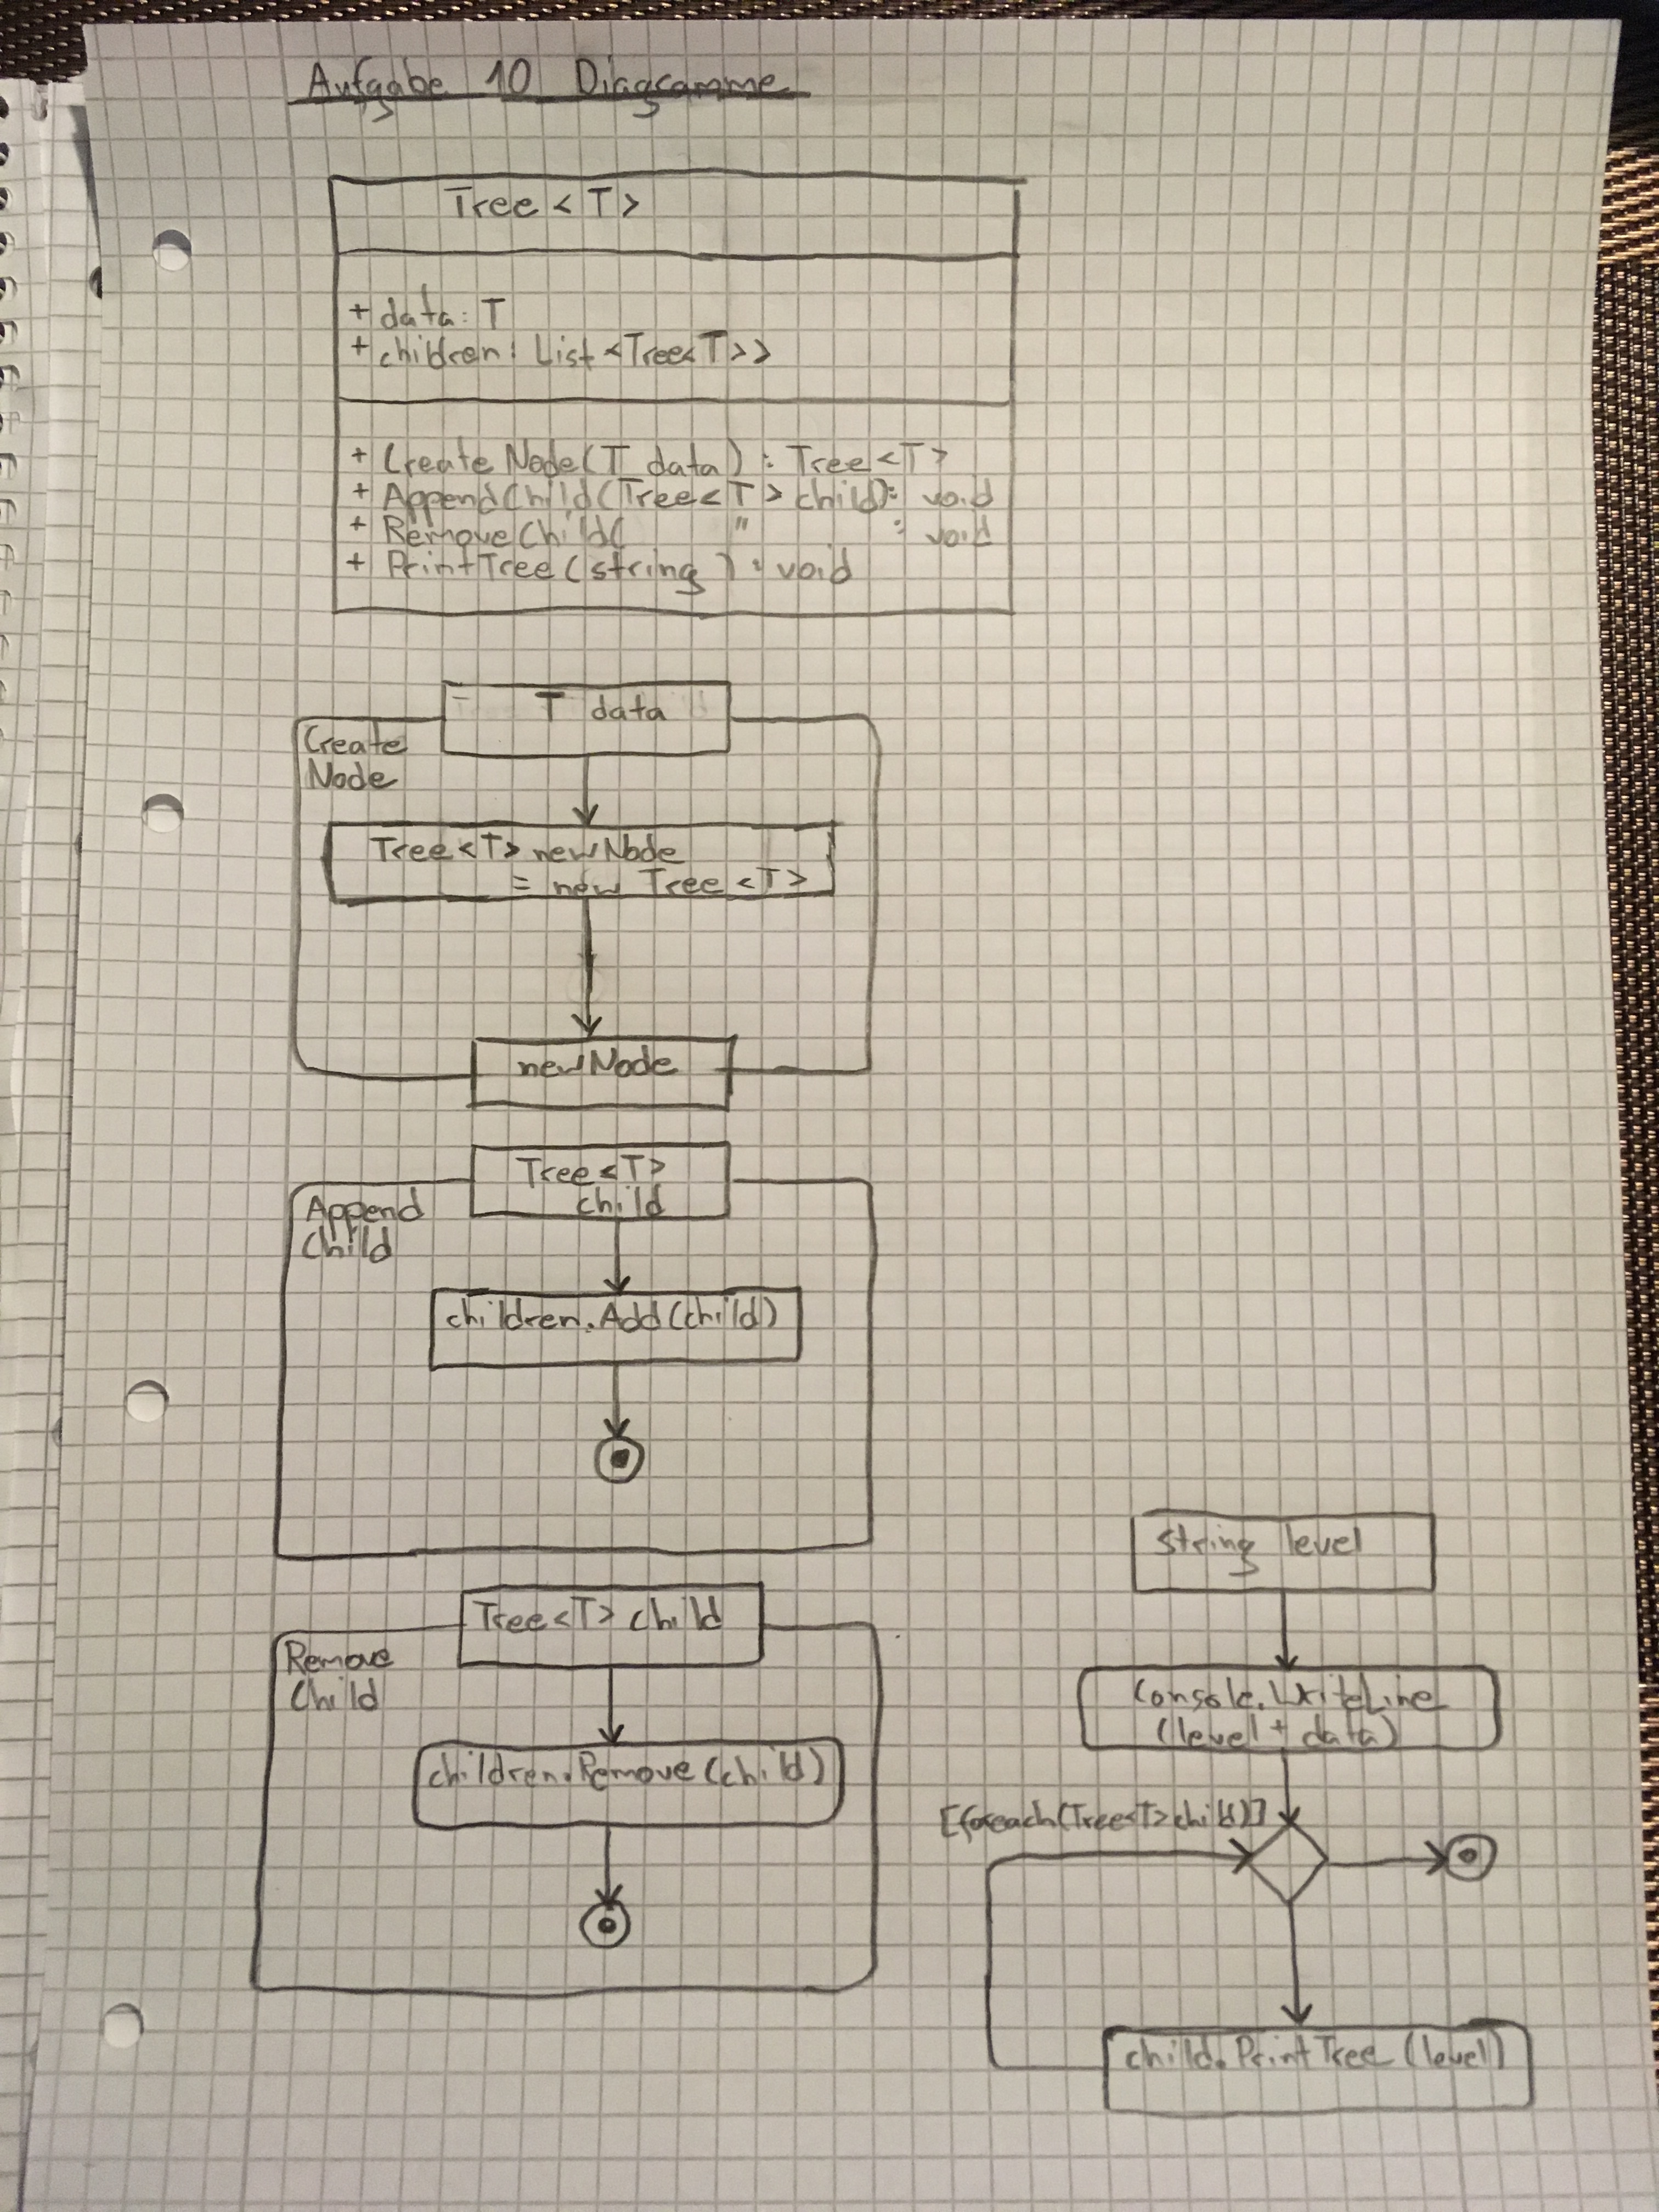 Aufgabe 10 Diagramme
Tree<T>
+ data: T
+ children: List<Tree<T>>
+ CreateNode(T data): Tree<T>
+ AppendChild(Tree<T> child): void
+ RemoveChild( " : void
+ PrintTree(string): void
T data
Create
Node
Tree<T> newNode
= new Tree<T>
newNode
Tree<T>
child
Append
Child
children.Add(child)
Tree<T> child
Remove
Child
children.Remove(child)
string level
Console.WriteLine
(level + data)
[foreach(Tree<T> child)]
child.PrintTree(level)